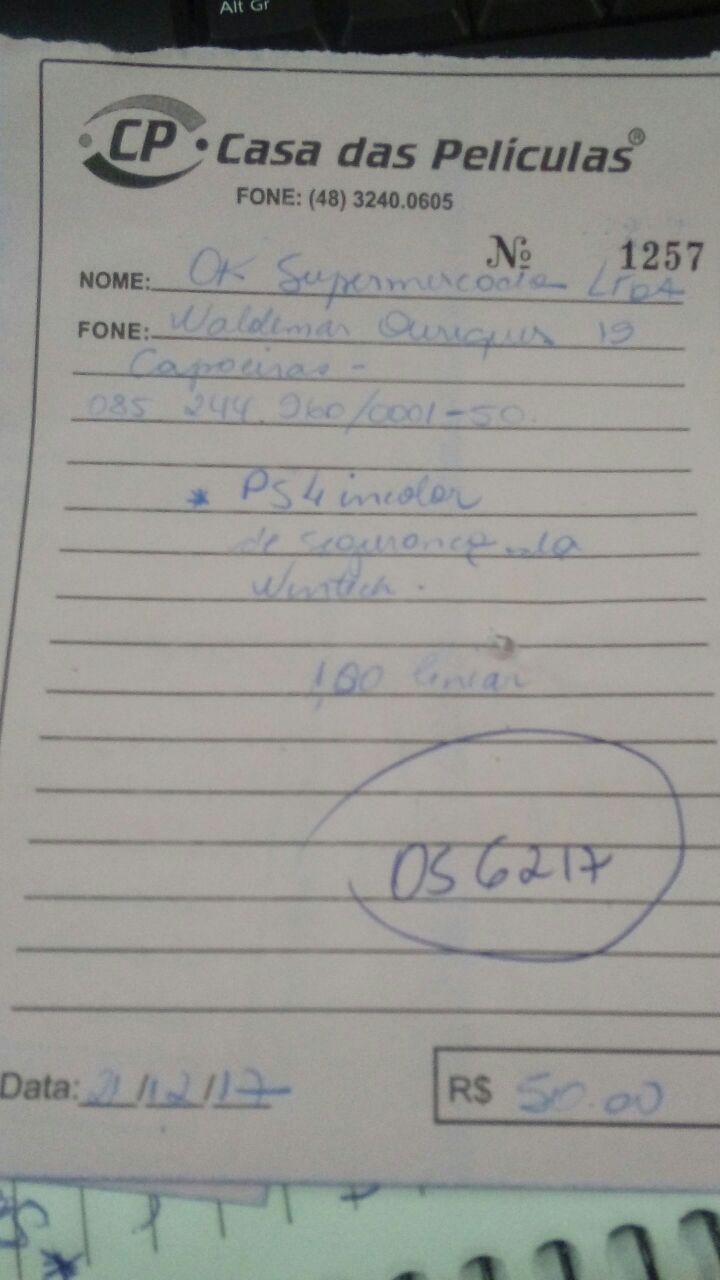 Alt Gr
CP Casa das Películas®
FONE: (48) 3240.0605
Nº 1257
NOME: OK Supermercado LTDA
FONE: Waldemar Ouriques 19
Capoeiras -
085 244 960/0001-50.
* PS4 incolor
de segurança da
Wintech.
1,00 linear
OS 6217
Data: 21/12/17
R$ 50.00